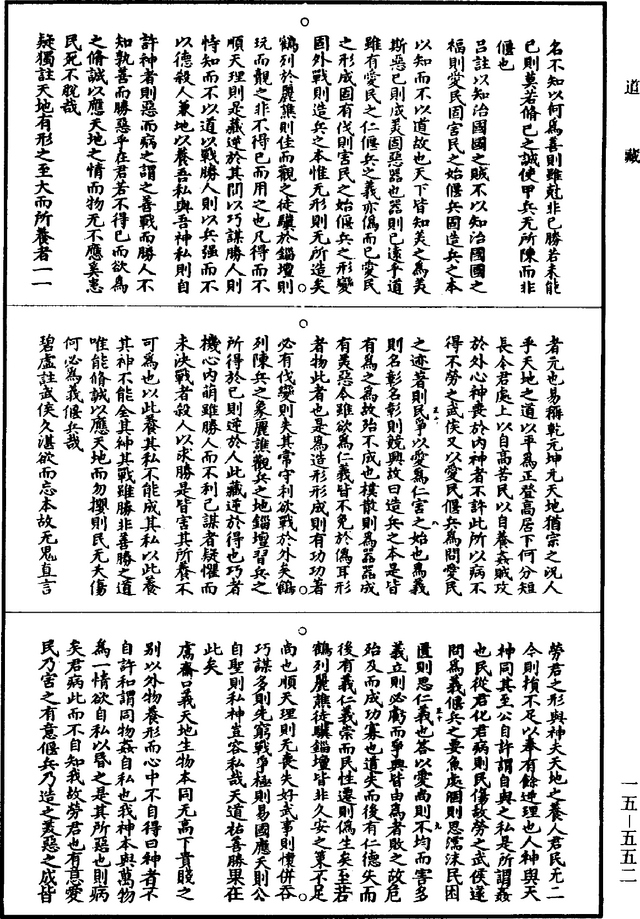 道藏
名不知以何爲善則雖尅非已勝若未能
已則莫若脩已之誠使甲兵无所陳而非
偃也
吕註以知治國國之賊不以知治國國之
福則愛民固害民之始偃兵固造兵之本
以知而不以道故也天下皆知美之爲美
斯惡已則成美固惡器也器則已遠乎道
雖有愛民之仁偃兵之義亦僞而已愛民
之形成固有伐則害民之始偃兵之形變
固外戰則造兵之本惟无形則无所造矣
鶴列於麗譙則佳而觀之徒驥於錙壇則
玩而覿之非不得已而用之也凡得而不
順天理則是藏逆於其間以巧謀勝人則
恃知而不以道以戰勝人則以兵強而不
以德殺人兼地以養吾私與吾神私則自
許神者則惡而病之謂之善戰而勝人不
知孰善而勝惡乎在君若不得已而欲爲
之脩誠以應天地之情而物无不應奚患
民死不脱哉
疑獨註天地有形之至大而所養者一一
者元也易稱乾元坤元天地猶宗之况人
乎天地之道以平爲正登高居下何分短
長今君處上以自高苦民以自養姦賊攻
於外心神喪於内神者不許此所以病不
得不勞之武侯又以愛民偃兵爲問愛民
之迹著則民爭以愛爲仁害之始也爲義
則名彰名彰則競興故曰造兵之本是皆
有爲之爲故殆不成也樸散則爲器器成
有美惡今雖欲爲仁義皆不免於僞耳形
者物此者也是爲造形形成則有功功著
必有伐變則失其常守利欲戰於外矣鶴
列陳兵之象麗譙觀兵之地錙壇習兵之
所得於已則逆於人此藏逆於得也巧者
機心内萌雖勝人而不利已謀者疑懼而
未決戰者殺人以求勝是皆害其所養不
可爲也以此養其私不能成其私以此養
其神不能全其神其戰雖勝非善勝之道
唯能脩誠以應天地而勿攖則民无夭傷
何必爲義偃兵哉
碧虚註武侯久湛欲而忘本故无鬼直言
勞君之形與神夫天地之養人君民无二
令則損不足以奉有餘逆理也人神與天
神同其至公自許謂自與之私是所謂姦
也民從君化君病則民傷故勞之武侯遂
問爲義偃兵之要魚處涸則思濡沫民困
匱則思仁義也答以愛尚則不均而害多
義立則必虧而爭興皆由爲者敗之故危
殆及而成功寡也道失而後有仁德失而
後有義仁義崇而民性遷則僞生矣至若
鶴列麗譙徒驥錙壇皆非久安之策不足
尚也順天理則无喪失好武事則懷併吞
巧謀多則先窮戰爭極則易國應天則公
自聖則私神豈容私哉天道祐善勝果在
此矣
鬳齋口義天地生物本同无高下貴賤之
别以外物養形而心中不自得曰神者不
自許和謂同物姦自私也我神本與萬物
爲一情欲自私以昏之是其所惡也則病
矣君病此而不自知我故勞君也有意愛
民乃害之有意偃兵乃造之美惡之成皆
一五－五五二